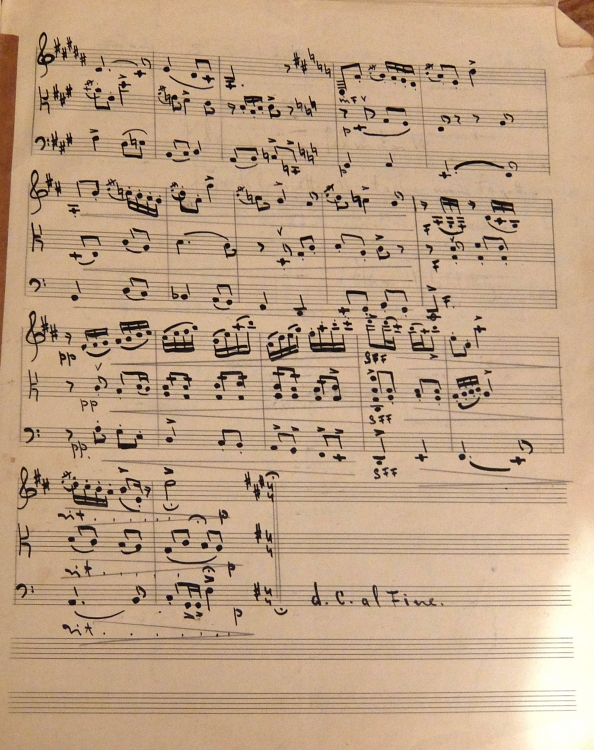 mf
p
f
f
f.
pp
sff
pp
sff
pp.
sff
rit. . . . . . . . p
rit. . . . . . . . p
rit. . . . . . . . p
d. C. al Fine.